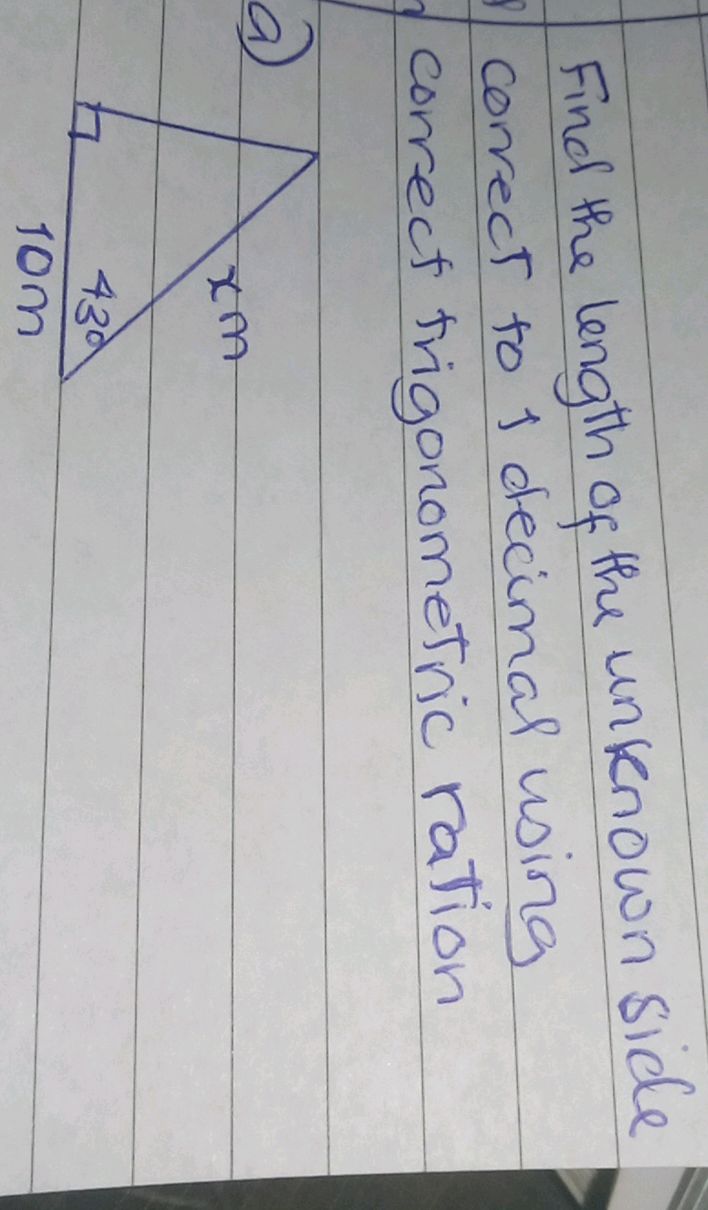 Find the length of the unknown side
correct to 1 decimal using
correct trigonometric ration
a)
xm
43°
10m